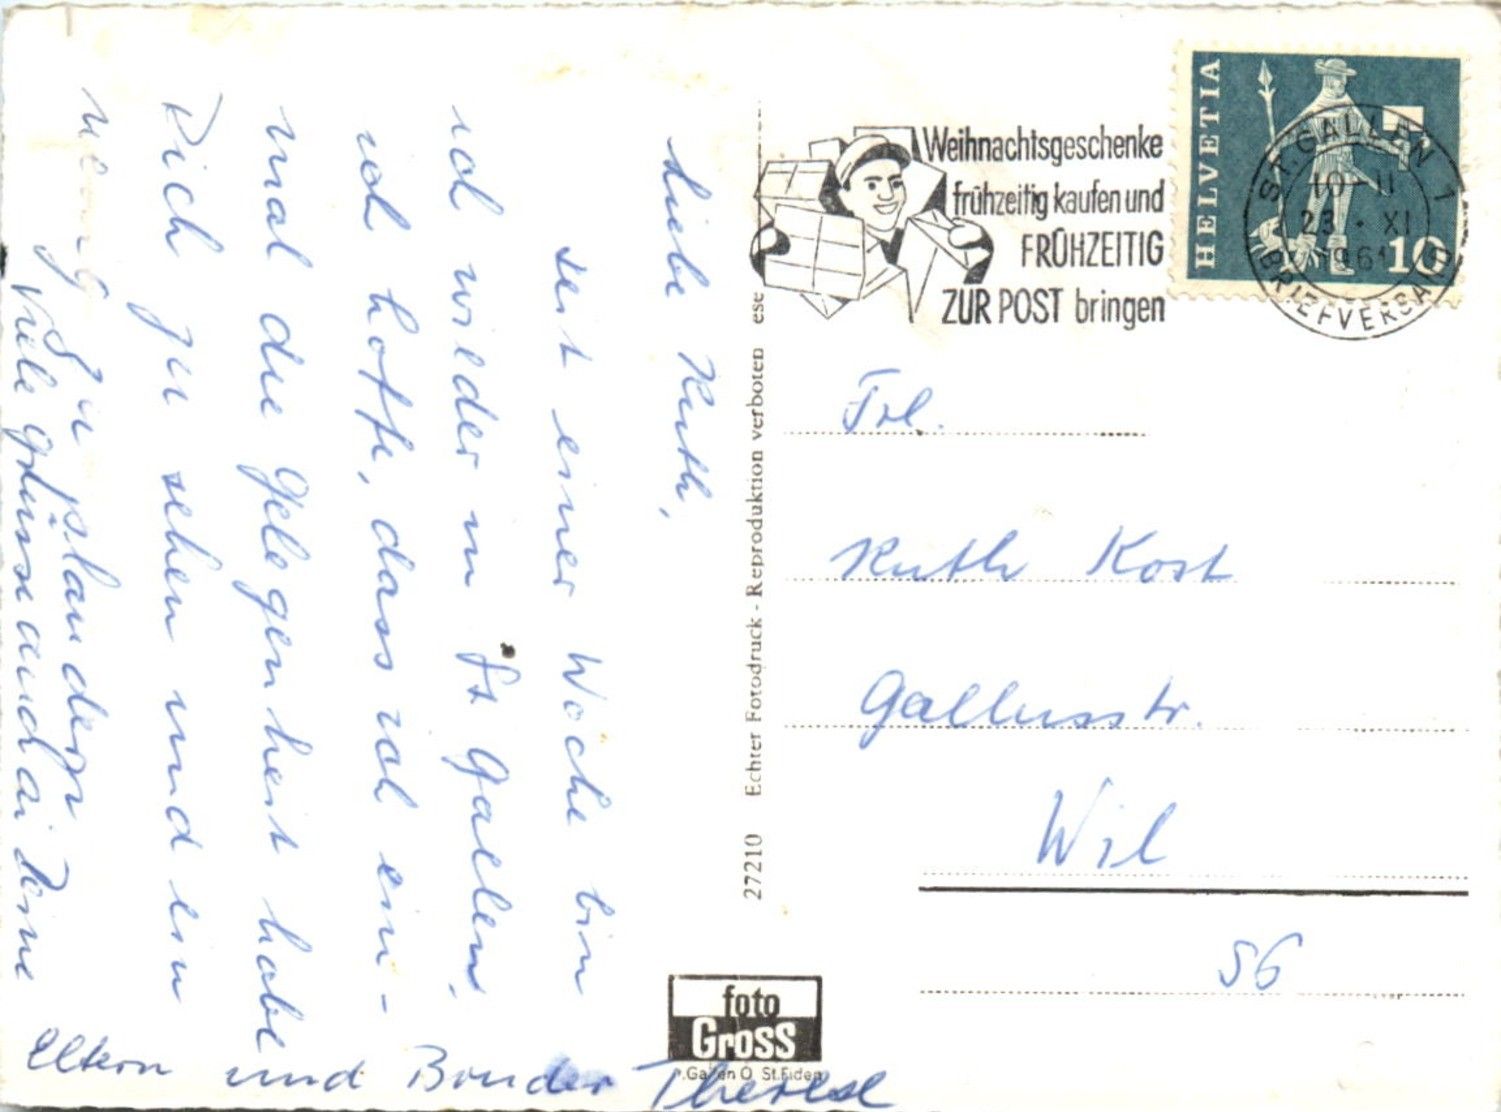 Liebe Ruth,
seit einer Woche bin
ich wieder in St Gallen,
ich hoffe, dass ich ein-
mal die Gelegenheit habe
Dich zu sehen und ein
wenig zu plaudern
Viele Grüsse auch an Deine
Eltern und Bruder Therese
27210 Echter Fotodruck - Reproduktion verboten ese
foto
Gross
St.Gallen O St.Fiden
Weihnachtsgeschenke
frühzeitig kaufen und
FRÜHZEITIG
ZUR POST bringen
HELVETIA
10
ST. GALLEN 1
10-11
23.XI
1961
BRIEFVERSAND
Frl.
Ruth Kost
Gallusstr.
Wil
SG